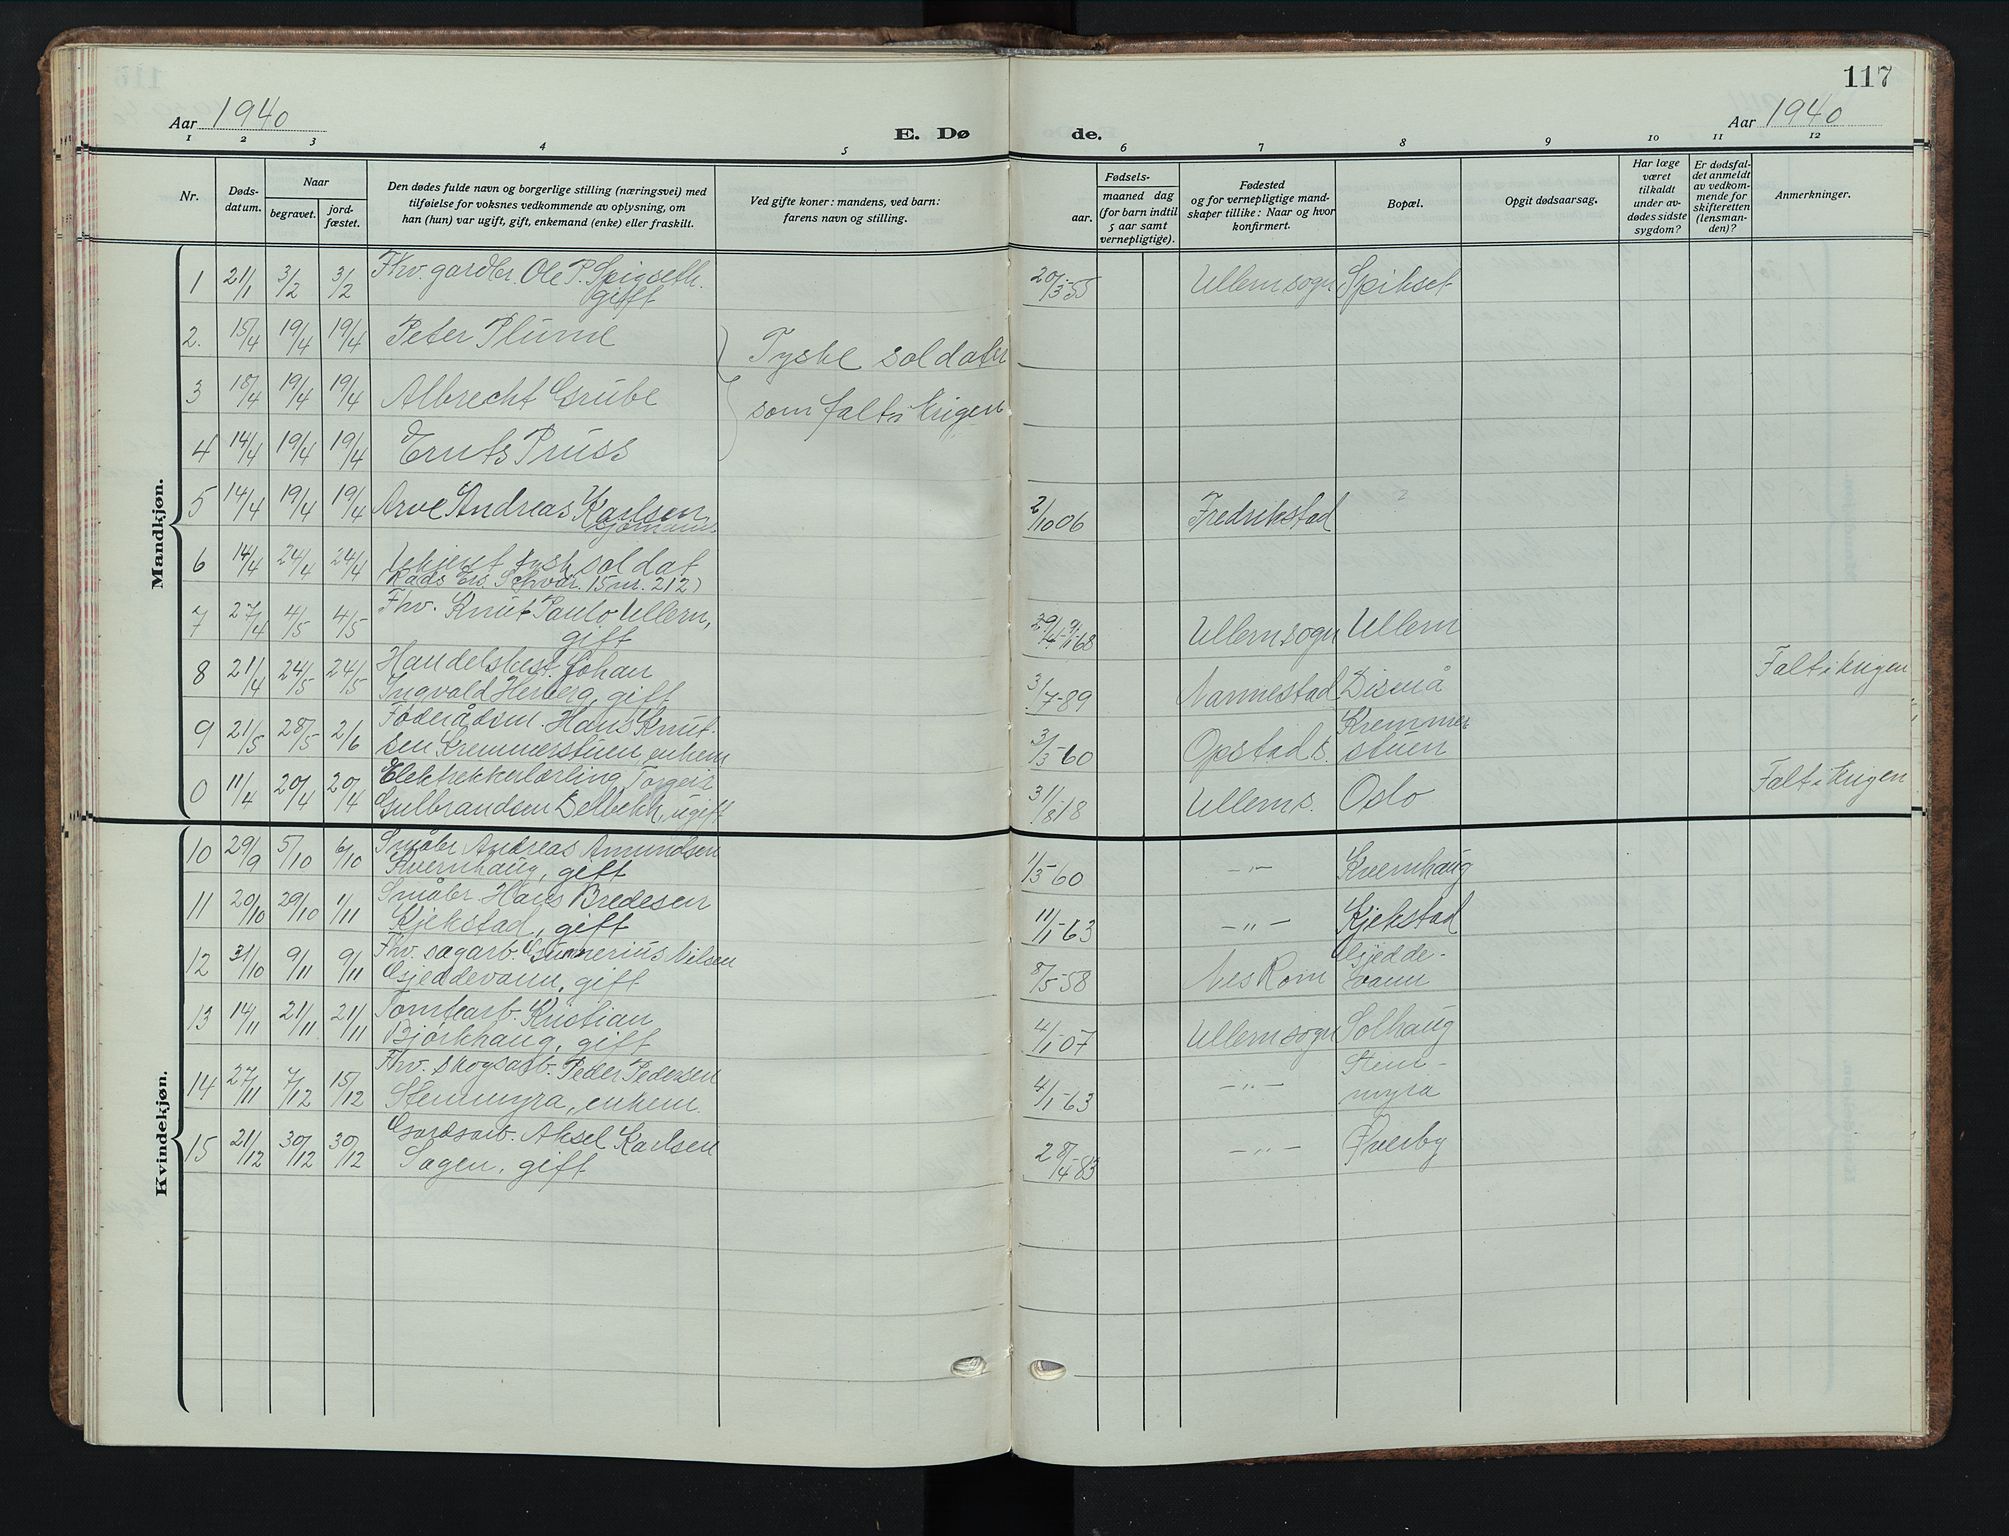 117
Aar 1940
E. Dø de.
Aar 1940
1 2 3 4 5 6 7 8 9 10 11 12
Nr.
Døds-
datum.
Naar
begravet.
jord-
fæstet.
Den dødes fulde navn og borgerlige stilling (næringsvei) med
tilføielse for voksnes vedkommende av oplysning, om
han (hun) var ugift, gift, enkemand (enke) eller fraskilt.
Ved gifte koner: mandens, ved barn:
farens navn og stilling.
Fødsels-
aar. maaned dag
(for barn indtil
5 aar samt
vernepligtige).
Fødested
og for vernepligtige mand-
skaper tillike: Naar og hvor
konfirmert.
Bopæl.
Opgit dødsaarsag.
Har læge
været
tilkaldt
under av-
dødes sidste
sygdom?
Er dødsfal-
det anmeldt
av vedkom-
mende for
skifteretten
(lensman-
den)?
Anmerkninger.
Mandkjøn.
1 21/1 3/2 3/2 Fhv. gardbr. Ole P. Spigseth. 20/3-55 Ullernsogn Spikset
gift
2. 15/4 19/4 19/4 Peter Plume Tyske soldater
3 18/4 19/4 19/4 Albrecht Grube som falt i krigen
4 14/4 19/4 19/4 Ernts Pruss
5 14/4 19/4 19/4 Arve Andreas Karlsen 2/10 06 Fredrikstad ?
Sjømann
6 14/4 24/4 24/4 Ukjent tysk soldat
Rads Ers. Schvar. 15 nr. 212)
7 27/4 4/5 4/5 Fhv. Knut Paulo Ullern, 68 Ullernsogn Ullern
gift
8 21/4 24/5 24/5 Handelsbest. Johan
Ingvald Herberg, gift 3/7-89 Nannestad Disenå Falt i krigen
9 21/5 28/5 2/6 Føderådsm. Hans Knut- Kremmer
sen Kremmerstuen, enkem 3/3-60 Opstad s. stuen
0 11/4 20/4 20/4 Elektrikerlærling Torgeir
Gulbrandsen Delbekk, ugift 31/8 18 Ullerns. Oslo Falt i krigen
Kvindekjøn.
10 29/9 5/10 6/10 Småbr. Andreas Amundsen
Kvernhaug, gift 1/3-60 -"- Kvernhaug
11 20/10 29/10 1/11 Småbr. Hans Bredesen
Kjekstad, gift 11/1-63 -"- Kjekstad
12 31/10 9/11 9/11 Fhv. sagarb. Gunnerius Nilsen Gjedde-
Gjeddevann, gift 8/5-58 Nes Rom vann
13 14/11 21/11 21/11 Tomtearb. Kristian
Bjørkhaug, gift 4/1-07 Ullernsogn Solhaug
14 27/11 7/12 15/12 Fhv. skogsarb. Peder Pedersen Stem-
Stemmyra, enkem. 4/1-63 -"- myra
15 21/12 30/12 30/12 Gardsarb. Aksel Karlsen
Sagen, gift 28/4-83 -"- Øverby